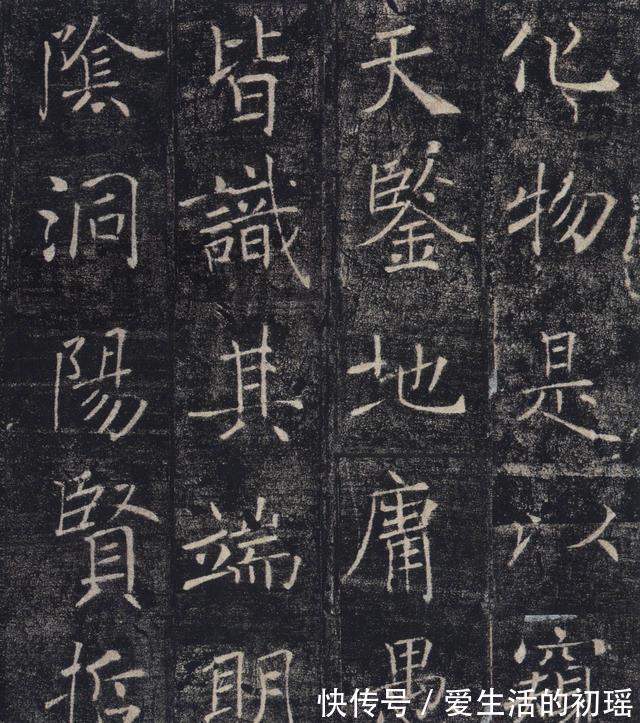 化物是以窺
天鑒地庸愚
皆識其端明
陰洞陽賢哲
快传号/爱生活的初瑶